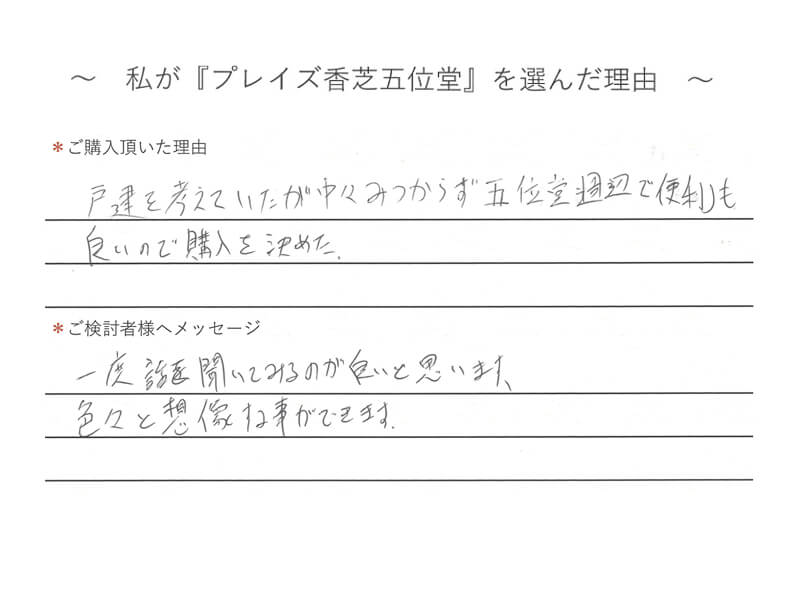 ～ 私が『プレイズ香芝五位堂』を選んだ理由 ～
*ご購入頂いた理由
戸建を考えていたが中々みつからず五位堂週辺で便利も
良いので購入を決めた.
*ご検討者様へメッセージ
一度話を聞いてみるのが良いと思います、
色々と想像する事ができます.